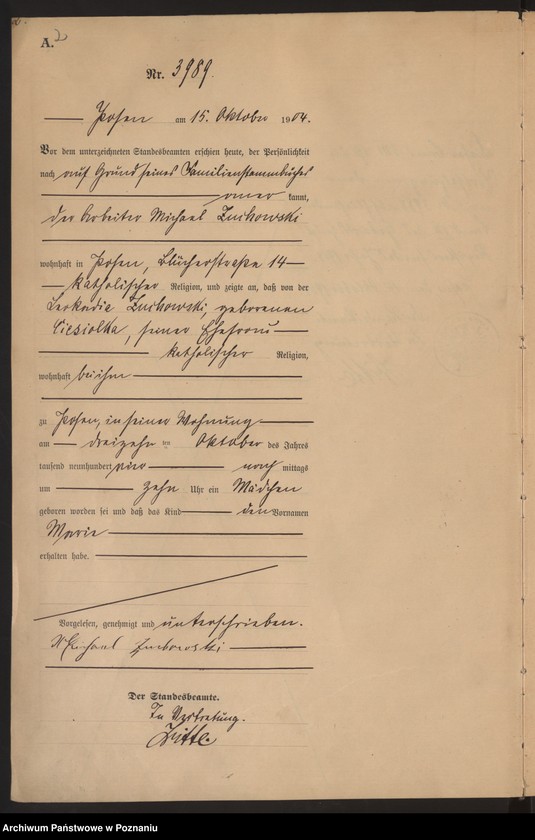 A. 2
Nr. 3989.
Posen am 15. Oktober 1904.
Vor dem unterzeichneten Standesbeamten erschien heute, der Persönlichkeit
nach auf Grund seines Familienstammbuches
kannt,
der Arbeiter Michael Zuikowski
wohnhaft in Posen, Blücherstraße 14
katholischer Religion, und zeigte an, daß von der
Leokadie Zuikowski, geborenen
Ciesiolka, seiner Ehefrau
katholischer Religion,
wohnhaft bei ihm
zu Posen, in seiner Wohnung
am dreizehn ten Oktober des Jahres
tausend neunhundert vier nach mittags
um zehn Uhr ein Mädchen
geboren worden sei und daß das Kind den Vornamen
Marie
erhalten habe.
Vorgelesen, genehmigt und unterschrieben.
Michael
Der Standesbeamte.
In Vertretung.
Archiwum Państwowe w Poznaniu